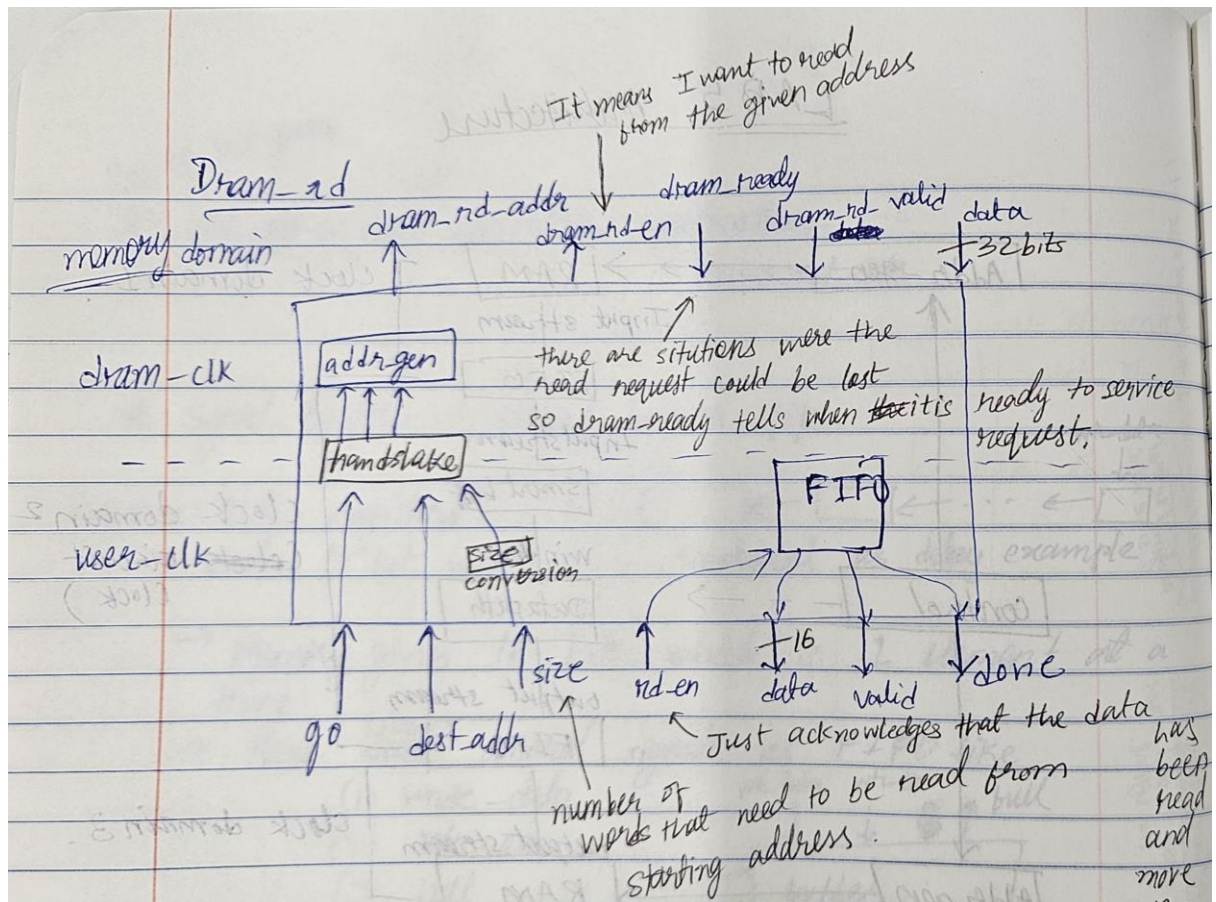 It means I want to read
from the given address
Dram_rd
memory domain
dram_rd_addr
dram_rd_en
dram_ready
dram_rd_valid
data
32bits
dram_clk
addr_gen
there are situtions were the
read request could be lost
so dram_ready tells when it is ready to service
request.
handshake
FIFO
user_clk
size
conversion
16
go
dest_addr
size
rd_en
data
valid
done
Just acknowledges that the data
has
been
read
and
move
number of
words that need to be read from
starting address.